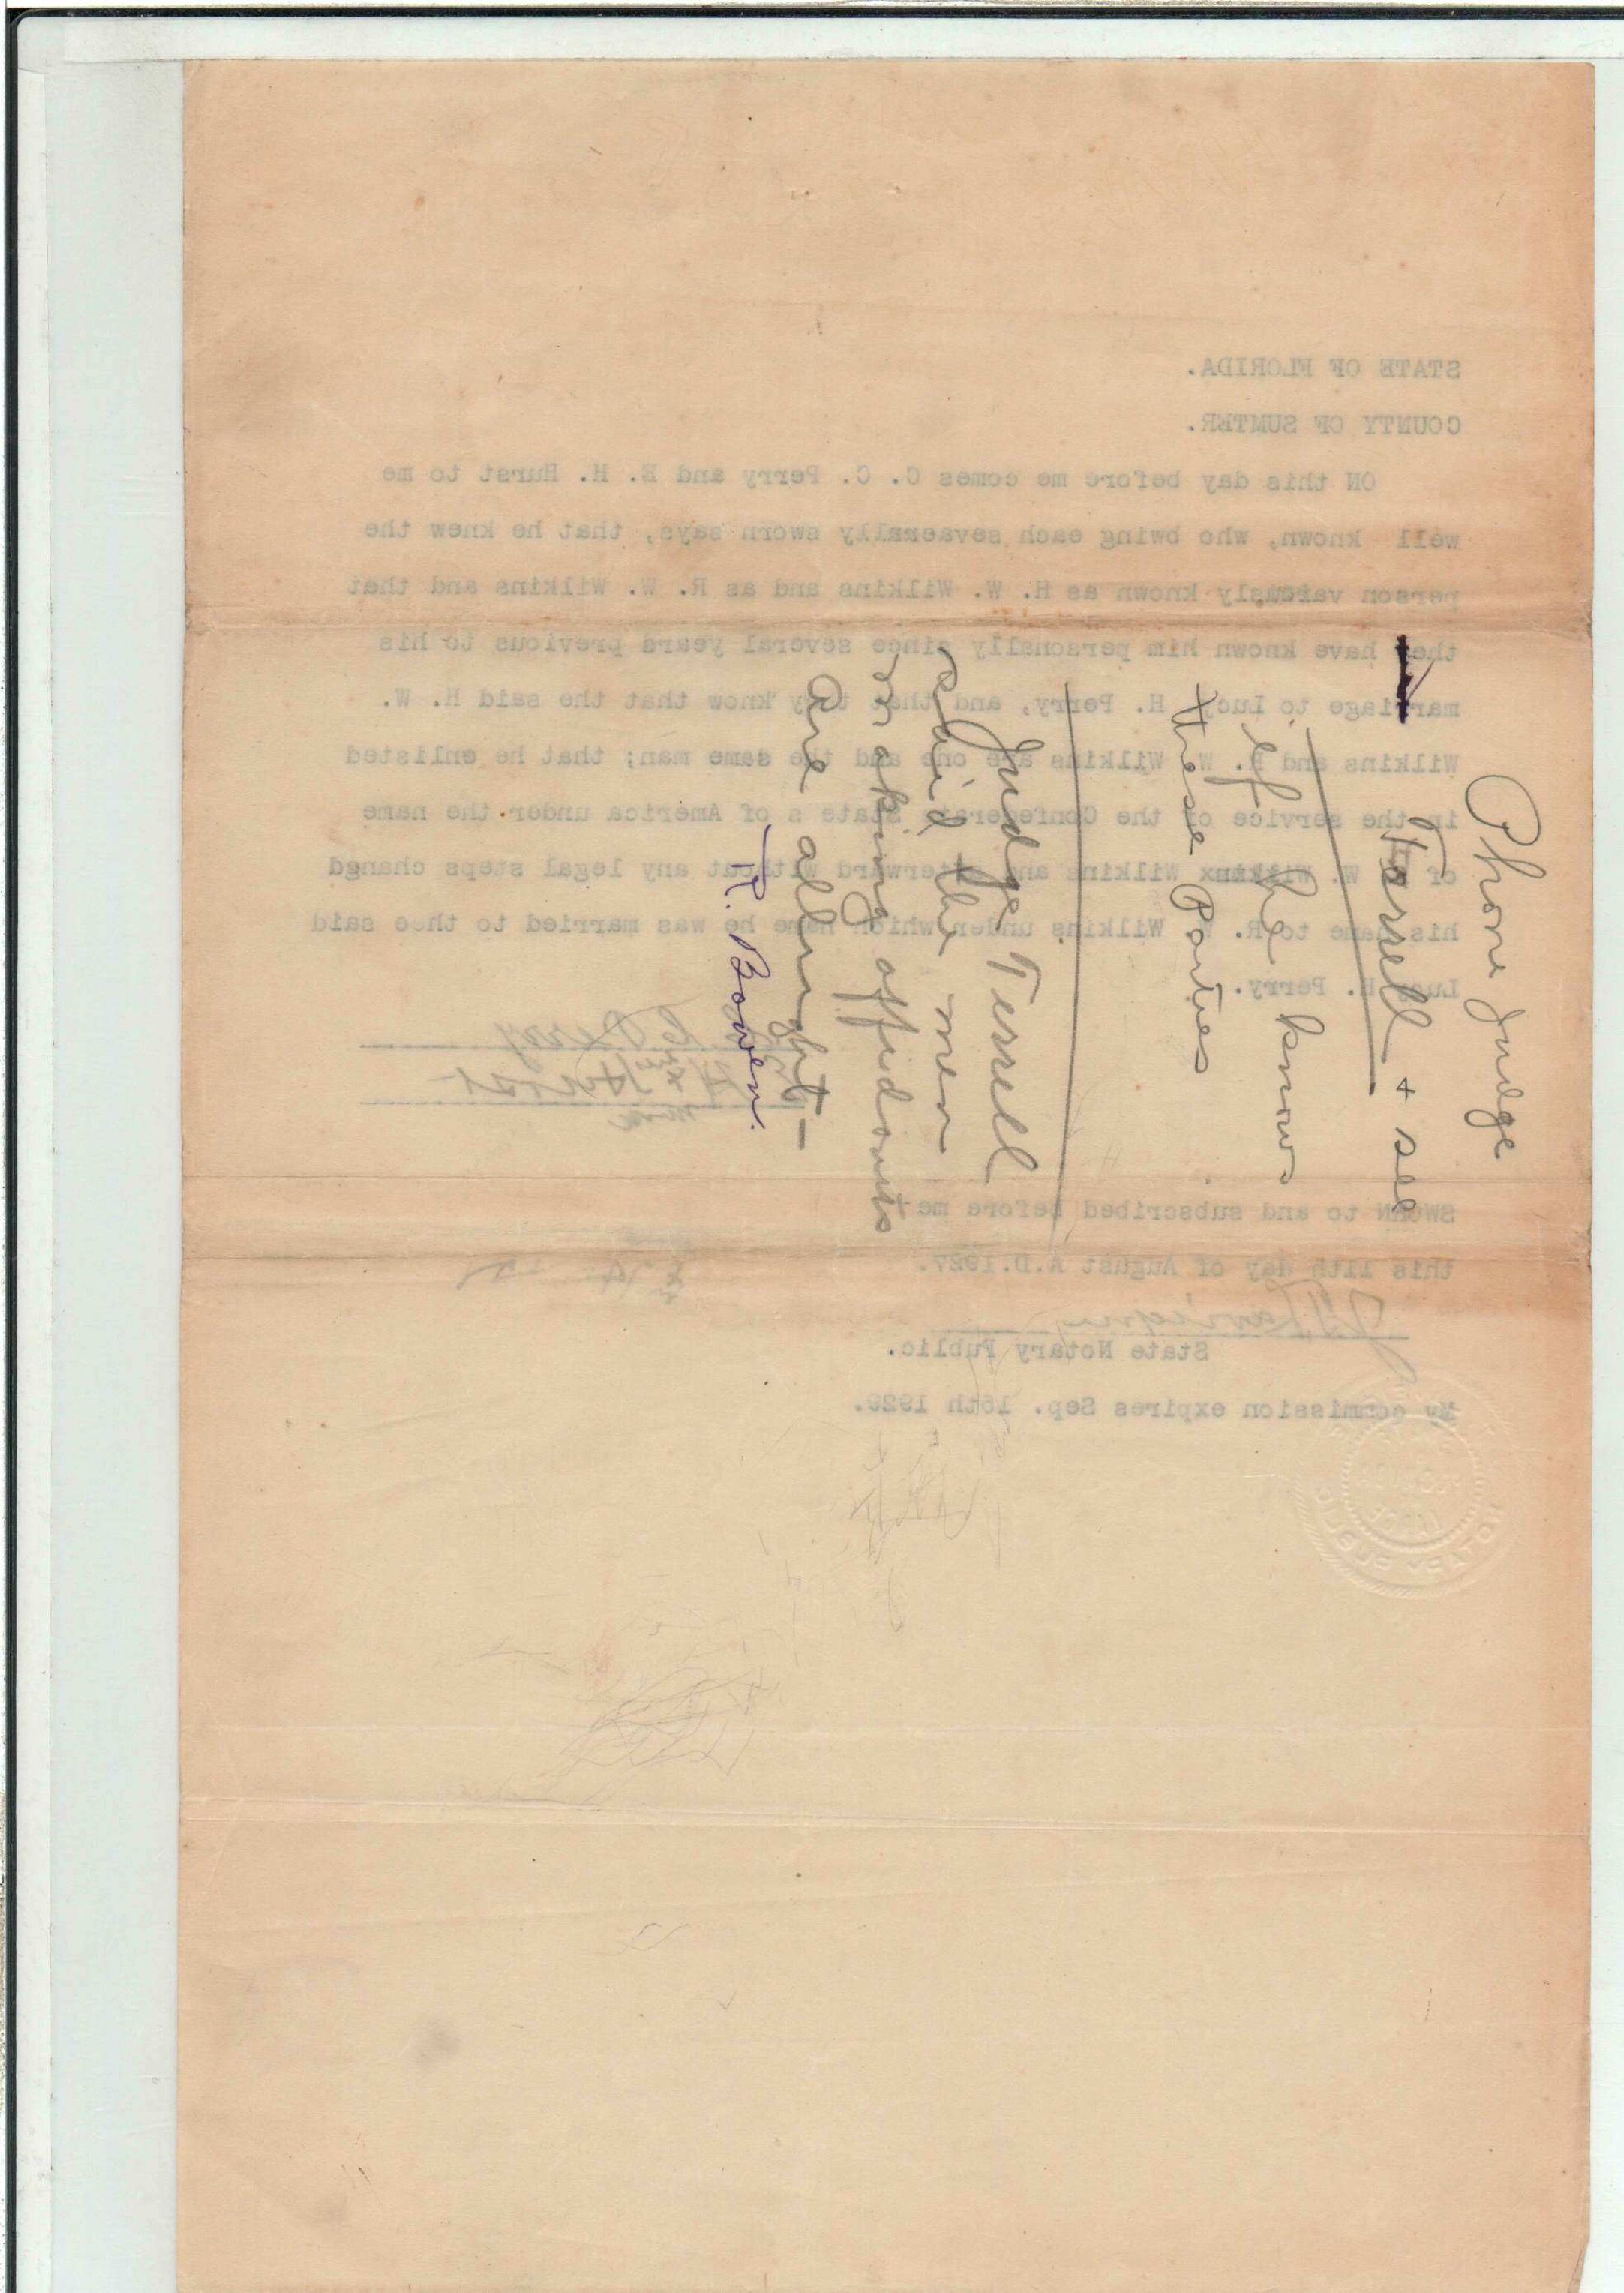 Phone Judge
Terrell + see
if he knows
these Parties
Judge Terrell
said the men
making affidavits
are allright -
T. R. Bowen.
STATE OF FLORIDA.
COUNTY OF SUMTER.
ON this day before me comes C. C. Perry and E. H. Hurst to me
well known, who bwing each sevaerally sworn says, that he knew the
person vairously known as H. W. Wilkins and as R. W. Wilkins and that
they have known him personally since several years previous to his
marriage to Lucy H. Perry, and that they know that the said H. W.
Wilkins and R. W. Wilkins are one and the same man; that he enlisted
in the service of the Confederate State s of America under the name
of W. Wilkins and afterward without any legal steps changed
his name to R. W. Wilkins under which name he was married to thee said
Lucy H. Perry.
C C Perry
H x Hurst
SWORN to and subscribed before me
this 11th day of August A.D.1927.
State Notary Public.
My commission expires Sep. 15th 1929.
NOTARY PUBLIC